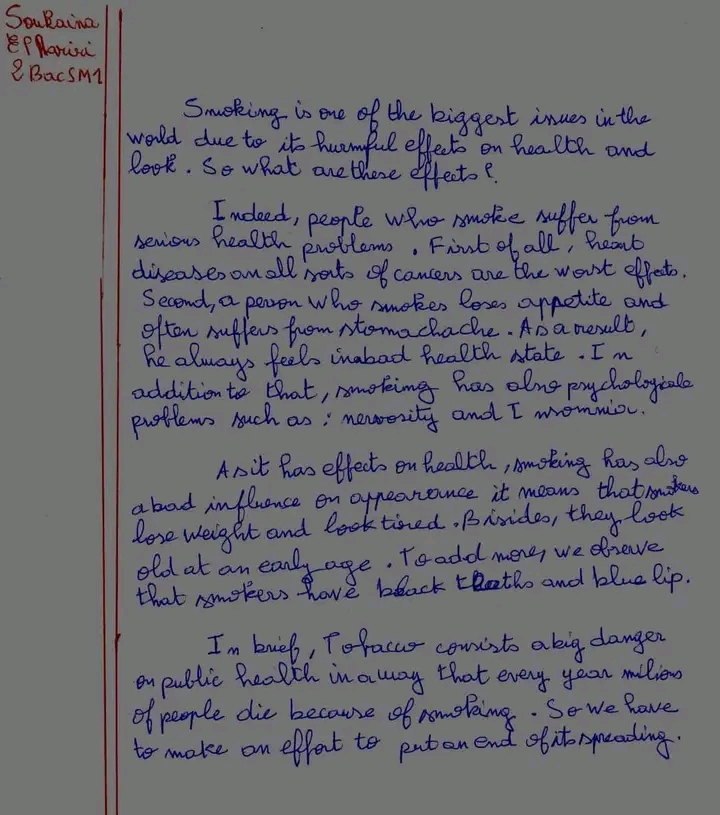 Soukaina
El Hariri
2BacSM1
Smoking is one of the biggest issues in the
world due to its harmful effects on health and
look. So what are these effects?
Indeed, people who smoke suffer from
serious health problems. First of all, heart
diseases an all sorts of cancers are the worst effects.
Second, a person who smokes loses appetite and
often suffers from stomachache. As a result,
he always feels in a bad health state. In
addition to that, smoking has also psychologicale
problems such as : nervosity and Insomnia.
As it has effects on health, smoking has also
a bad influence on appearance it means that smokers
lose weight and look tired. Bisides, they look
old at an early age. To add more, we observe
that smokers have black teeths and blue lip.
In brief, Tobacco consists a big danger
on public health in a way that every year milions
of people die because of smoking. So we have
to make an effort to put an end of its spreading.